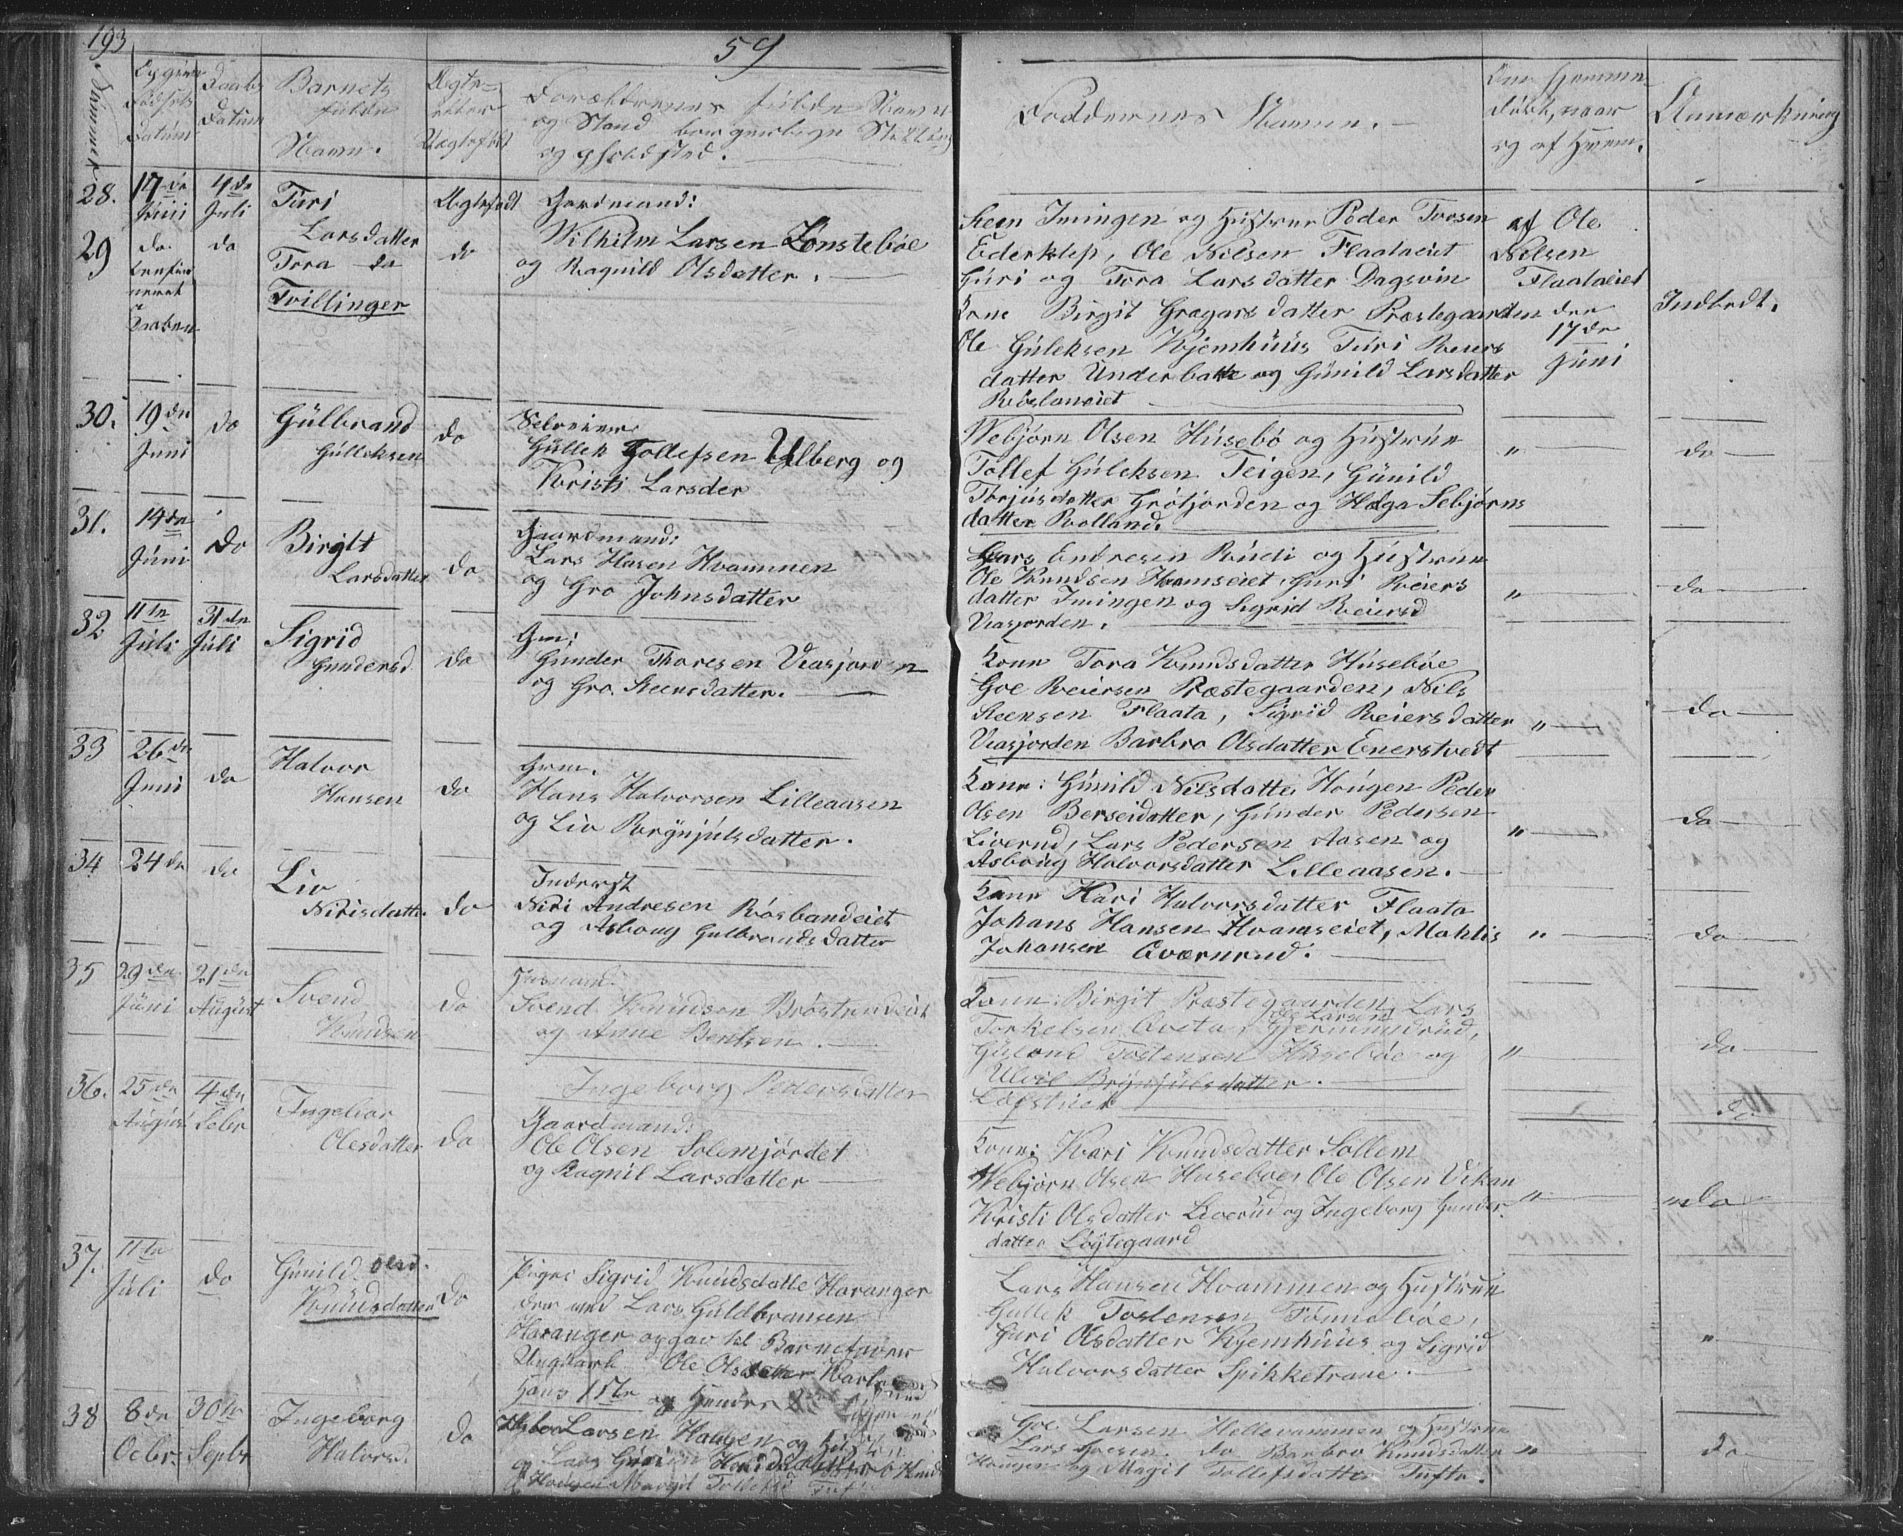 193
59
Nummer
Opgivne Fødsels Datum
Daabs Datum
Barnets fulde Navn.
Ægte- eller Uægtefødt
Forældrenes fulde Navn
og Stand borgerlige Stilling
og Opholdsted.
Faddernes Navne.
Om Hjemme-
døbt, naar
og af Hvem.
Anmærkning
28. 17de Juni
4de Juli
Turi Larsdatter
Ægtefødt
Gardmand:
29 do
do
Tora do
Tvillinger
do
Wilhilm Larsen Lonstebøe
og Ragnild Olsdatter.
Steen Imingen og Hustrue Peder Toresen
Ederklep, Ole Nilsen Flaataeiet
Guri og Tora Larsdatter Dagsvin
Kone Birgit Gregarsdatter Præstegaarden
Ole Guleksen Kjemhuus Turi Reiers
datter Underbakke og Gunild Larsdatter
af Ole
Nilsen
Flaataeiet
den
17de
Juni
Indbudt.
30. 19de Juni
do
Gulbrand
Gulleksen
do
Selveier:
Gullek Tollefsen Ulberg og
Kristi Larsder
Webjørn Olsen Husebø og Hustrue
Tollef Guleksen Teigen, Gunild
Torjusdatter Grøtjorden og Helga Sebjørns
datter Rolland.
"
do
31. 14de Juni
do
Birgit
Larsdatter
do
Gaardmand:
Lars Hasen Hvammen
og Gro Johnsdatter
Lars Endresen Rudi og Hustrue
Ole Knudsen Hvamseiet, Guri Reiers
datter Imingen og Sigrid Reiersd
Veasjorden.
"
do
32. 11te Juli
31de Juli
Sigrid
Gundersd
do
Gm:
Gunder Thoresen Veasjorden
og Gro Steensdatter.
Kone Tora Knudsdatter Husebøe
Goe Reiersen Præstegaarden, Nils
Steensen Flaata, Sigrid Reiersdatter
Veasjorden Barbro Olsdatter Enerstvedt
"
do
33 26de Juni
do
Halvor
Hansen
do
Grm.
Hans Halvorsen Lilleaasen
og Liv Brynjulsdatter.
Kone: Gunild Nilsdatter Hougen Peder
Olsen Berseidatter, Gunder Pedersen
Liverud, Lars Pedersen Aasen og
Asboug Halvorsdatter Lilleaasen.
"
do
34 24de
do
Liv
Nirisdatter
do
Inderst
Niri Andresen Røsbandeiet
og Asboug Gulbrandsdatter
Kone Kari Halvorsdatter Flaata
Johans Hansen Hvamseiet, Mahlis
Johansen Qværnrud.
"
do
35 29de Juni
21de August
Svend
Knudsen
do
Husmand:
Svend Knudsen Brøstrudeiet
og Anne Bentsen.
Ingeborg Pedersdatter
Kone: Birgit Præstegaarden, Lars
Torkelsen Qveta, Ole Larsen Gjermundrud,
Tostensen Husebøe og
Ulvil Brynjulsdatter.
"
do
36. 25de August
4de Sebr
Ingebor
Olesdatter
do
Gaardmand:
Ole Olsen Solemjordet
og Ragnil Larsdatter
Kone: Kari Knudsdatter Sollem
Webjørn Olsen Husebøe, Ole Olsen Vikan
Kristi Olsdatter Liverud og Ingeborg Gunder
datter Løgtegaard
"
do
37. 11te Juli
do
Gunild Olsd.
Knudsdatter
do
Pige: Sigrid Knudsdatte Haranger
Lars Guldbransen
Haranger opgav til Barnefader
Ungkarl Ole
Lars Hansen Hvammen og Hustrue
Gullek Tostensen Tønnebøe,
Guri Olsdatter Kjemhuus og Sigrid
Halvorsdatter Spikketrane.
"
38 8de Ocbr.
30te Sepbr
Ingeborg
Halvorsd.
do
Larsen Haugen og
Goe Larsen Hellevammen og Hustrue
Lars Goesen do Barbro Knudsdatter
Haugen og Magit Tollefsdatter Tufte.
"
do